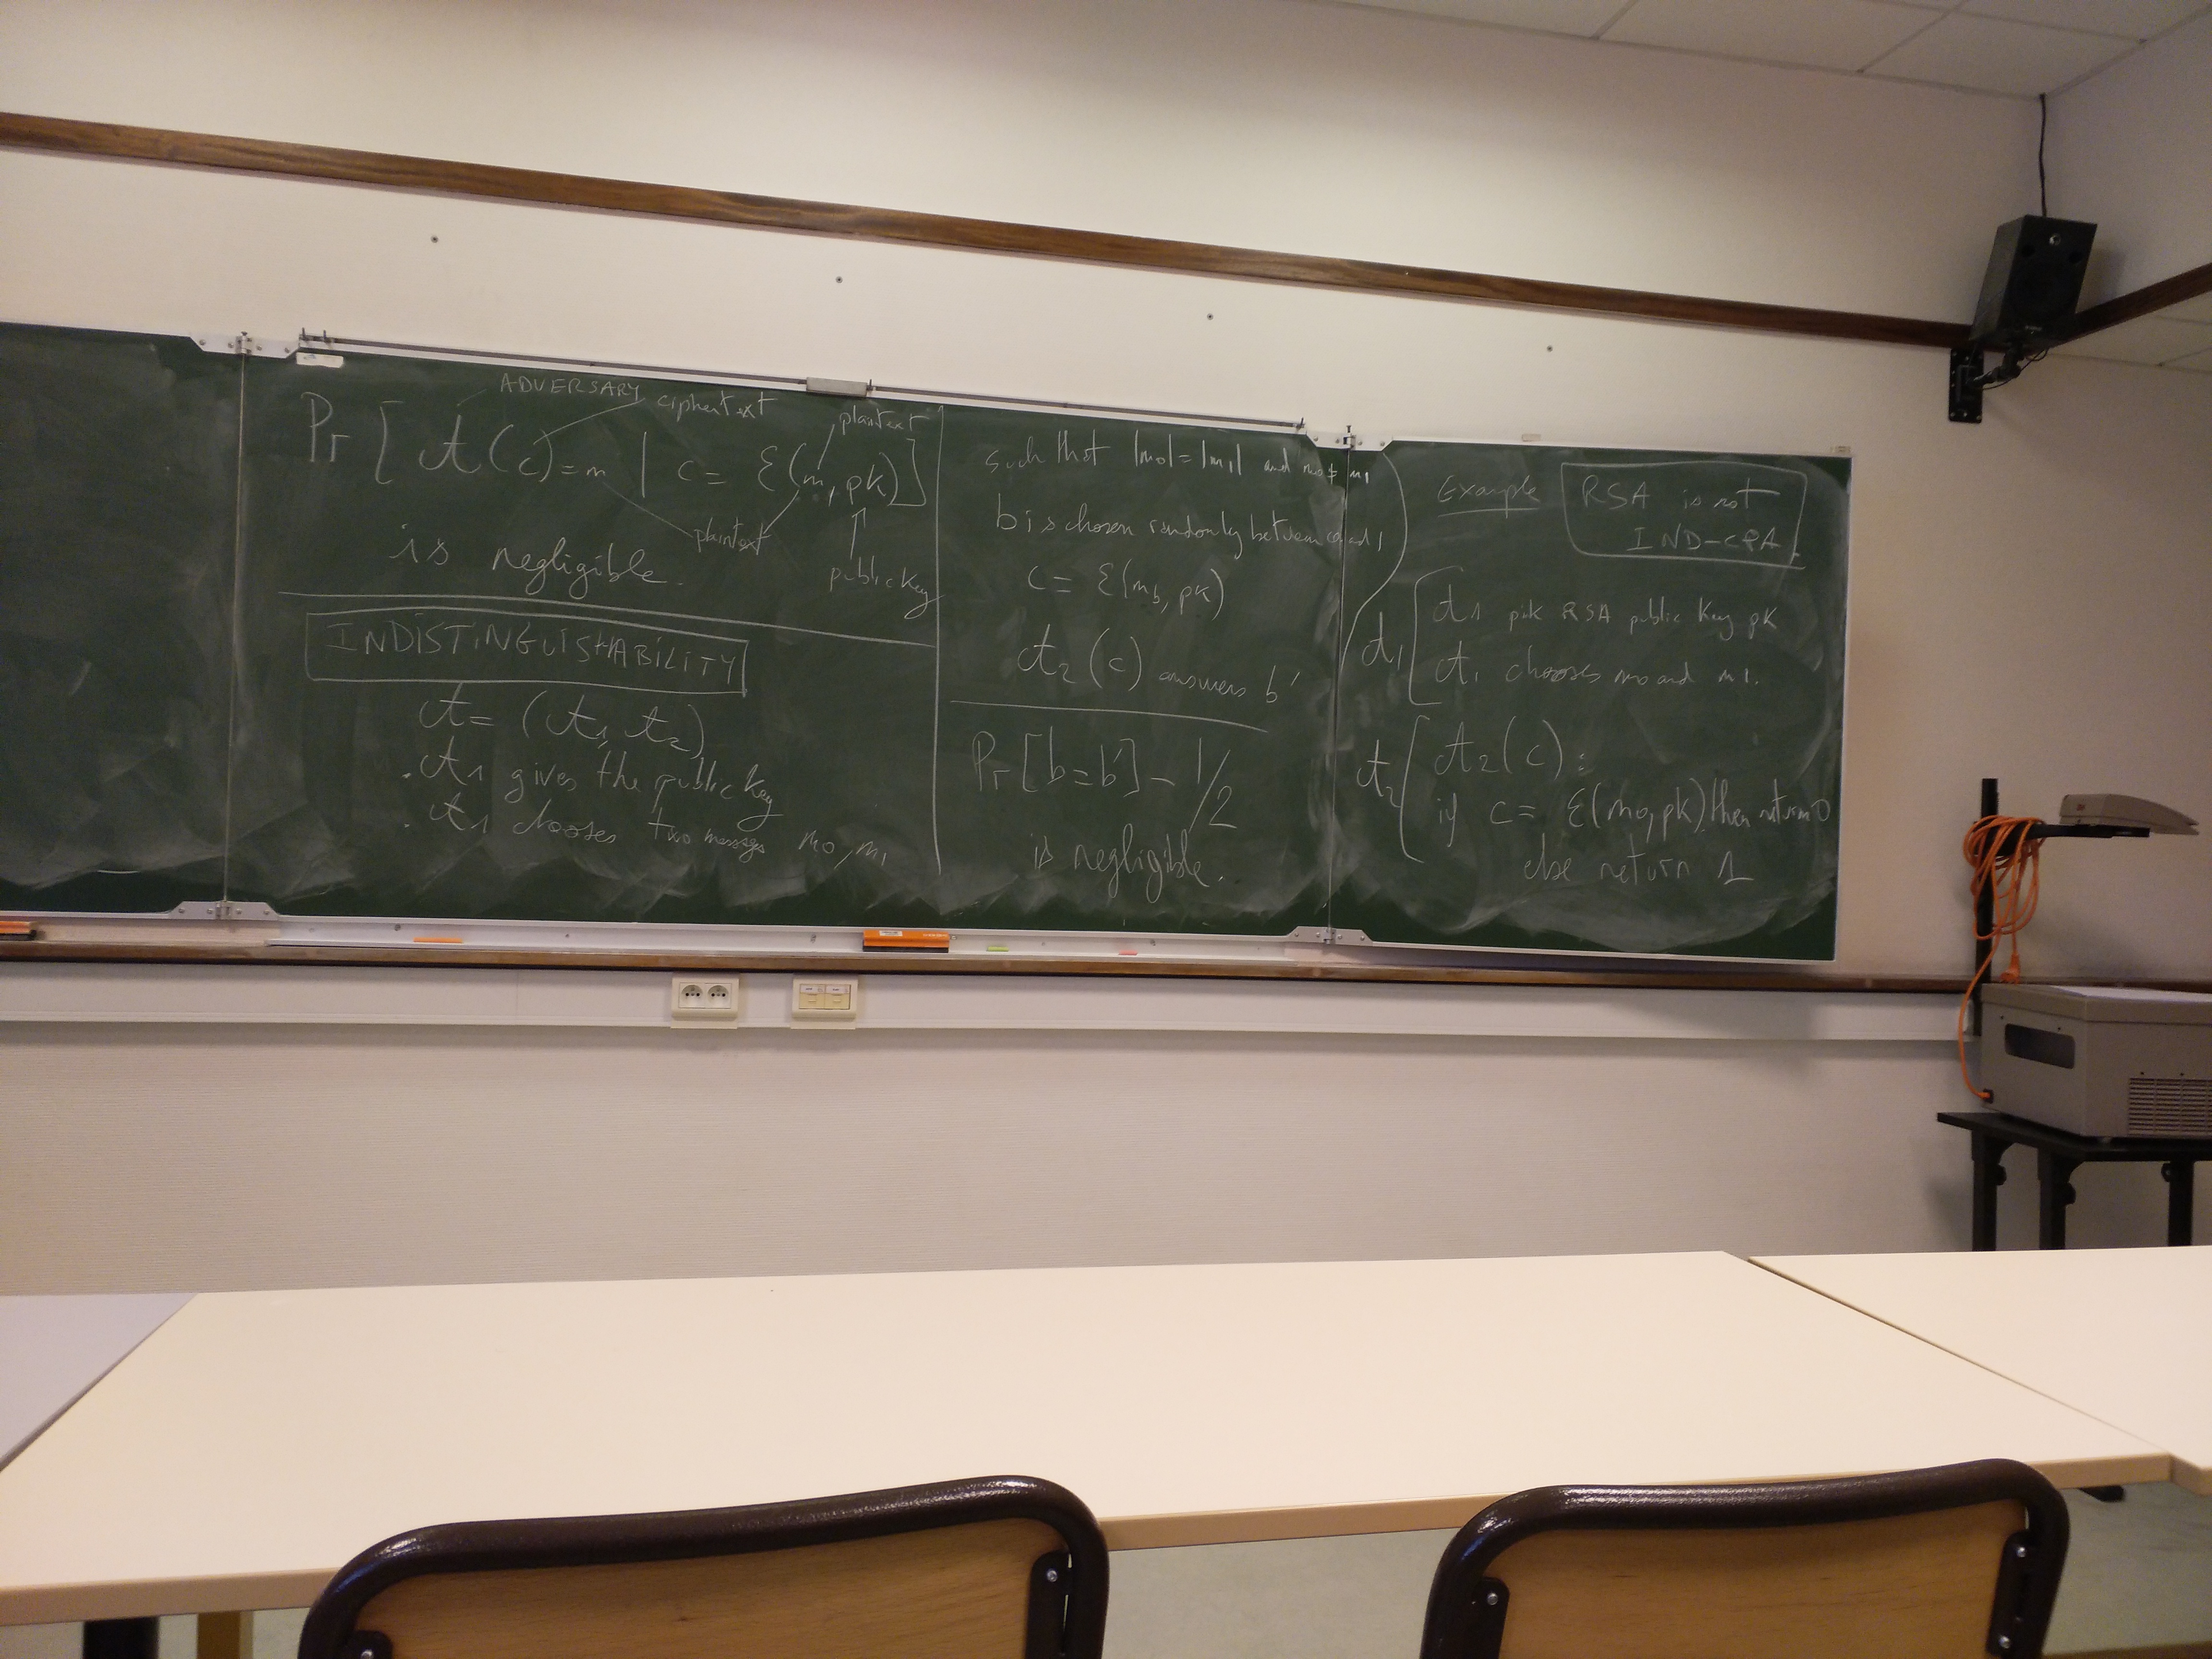 ADVERSARY
ciphertext
plaintext
Pr [ A(c) = m | c = ℰ(m, pk) ]
plaintext
is negligible.
public key
INDISTINGUISHABILITY
A = (A1, A2)
. A1 gives the public key
. A1 chooses two messages m0, m1
such that |m0| = |m1| and m0 ≠ m1
b is chosen randomly between 0 and 1
c = ℰ(mb, pk)
A2 (c) answers b'
Pr [b = b'] - 1/2
is negligible.
Example
RSA is not
IND-CPA.
A1
A1 pick RSA public key pk
A1 chooses m0 and m1.
A2
A2(c) :
if c = ℰ(m0, pk) then return 0
else return 1